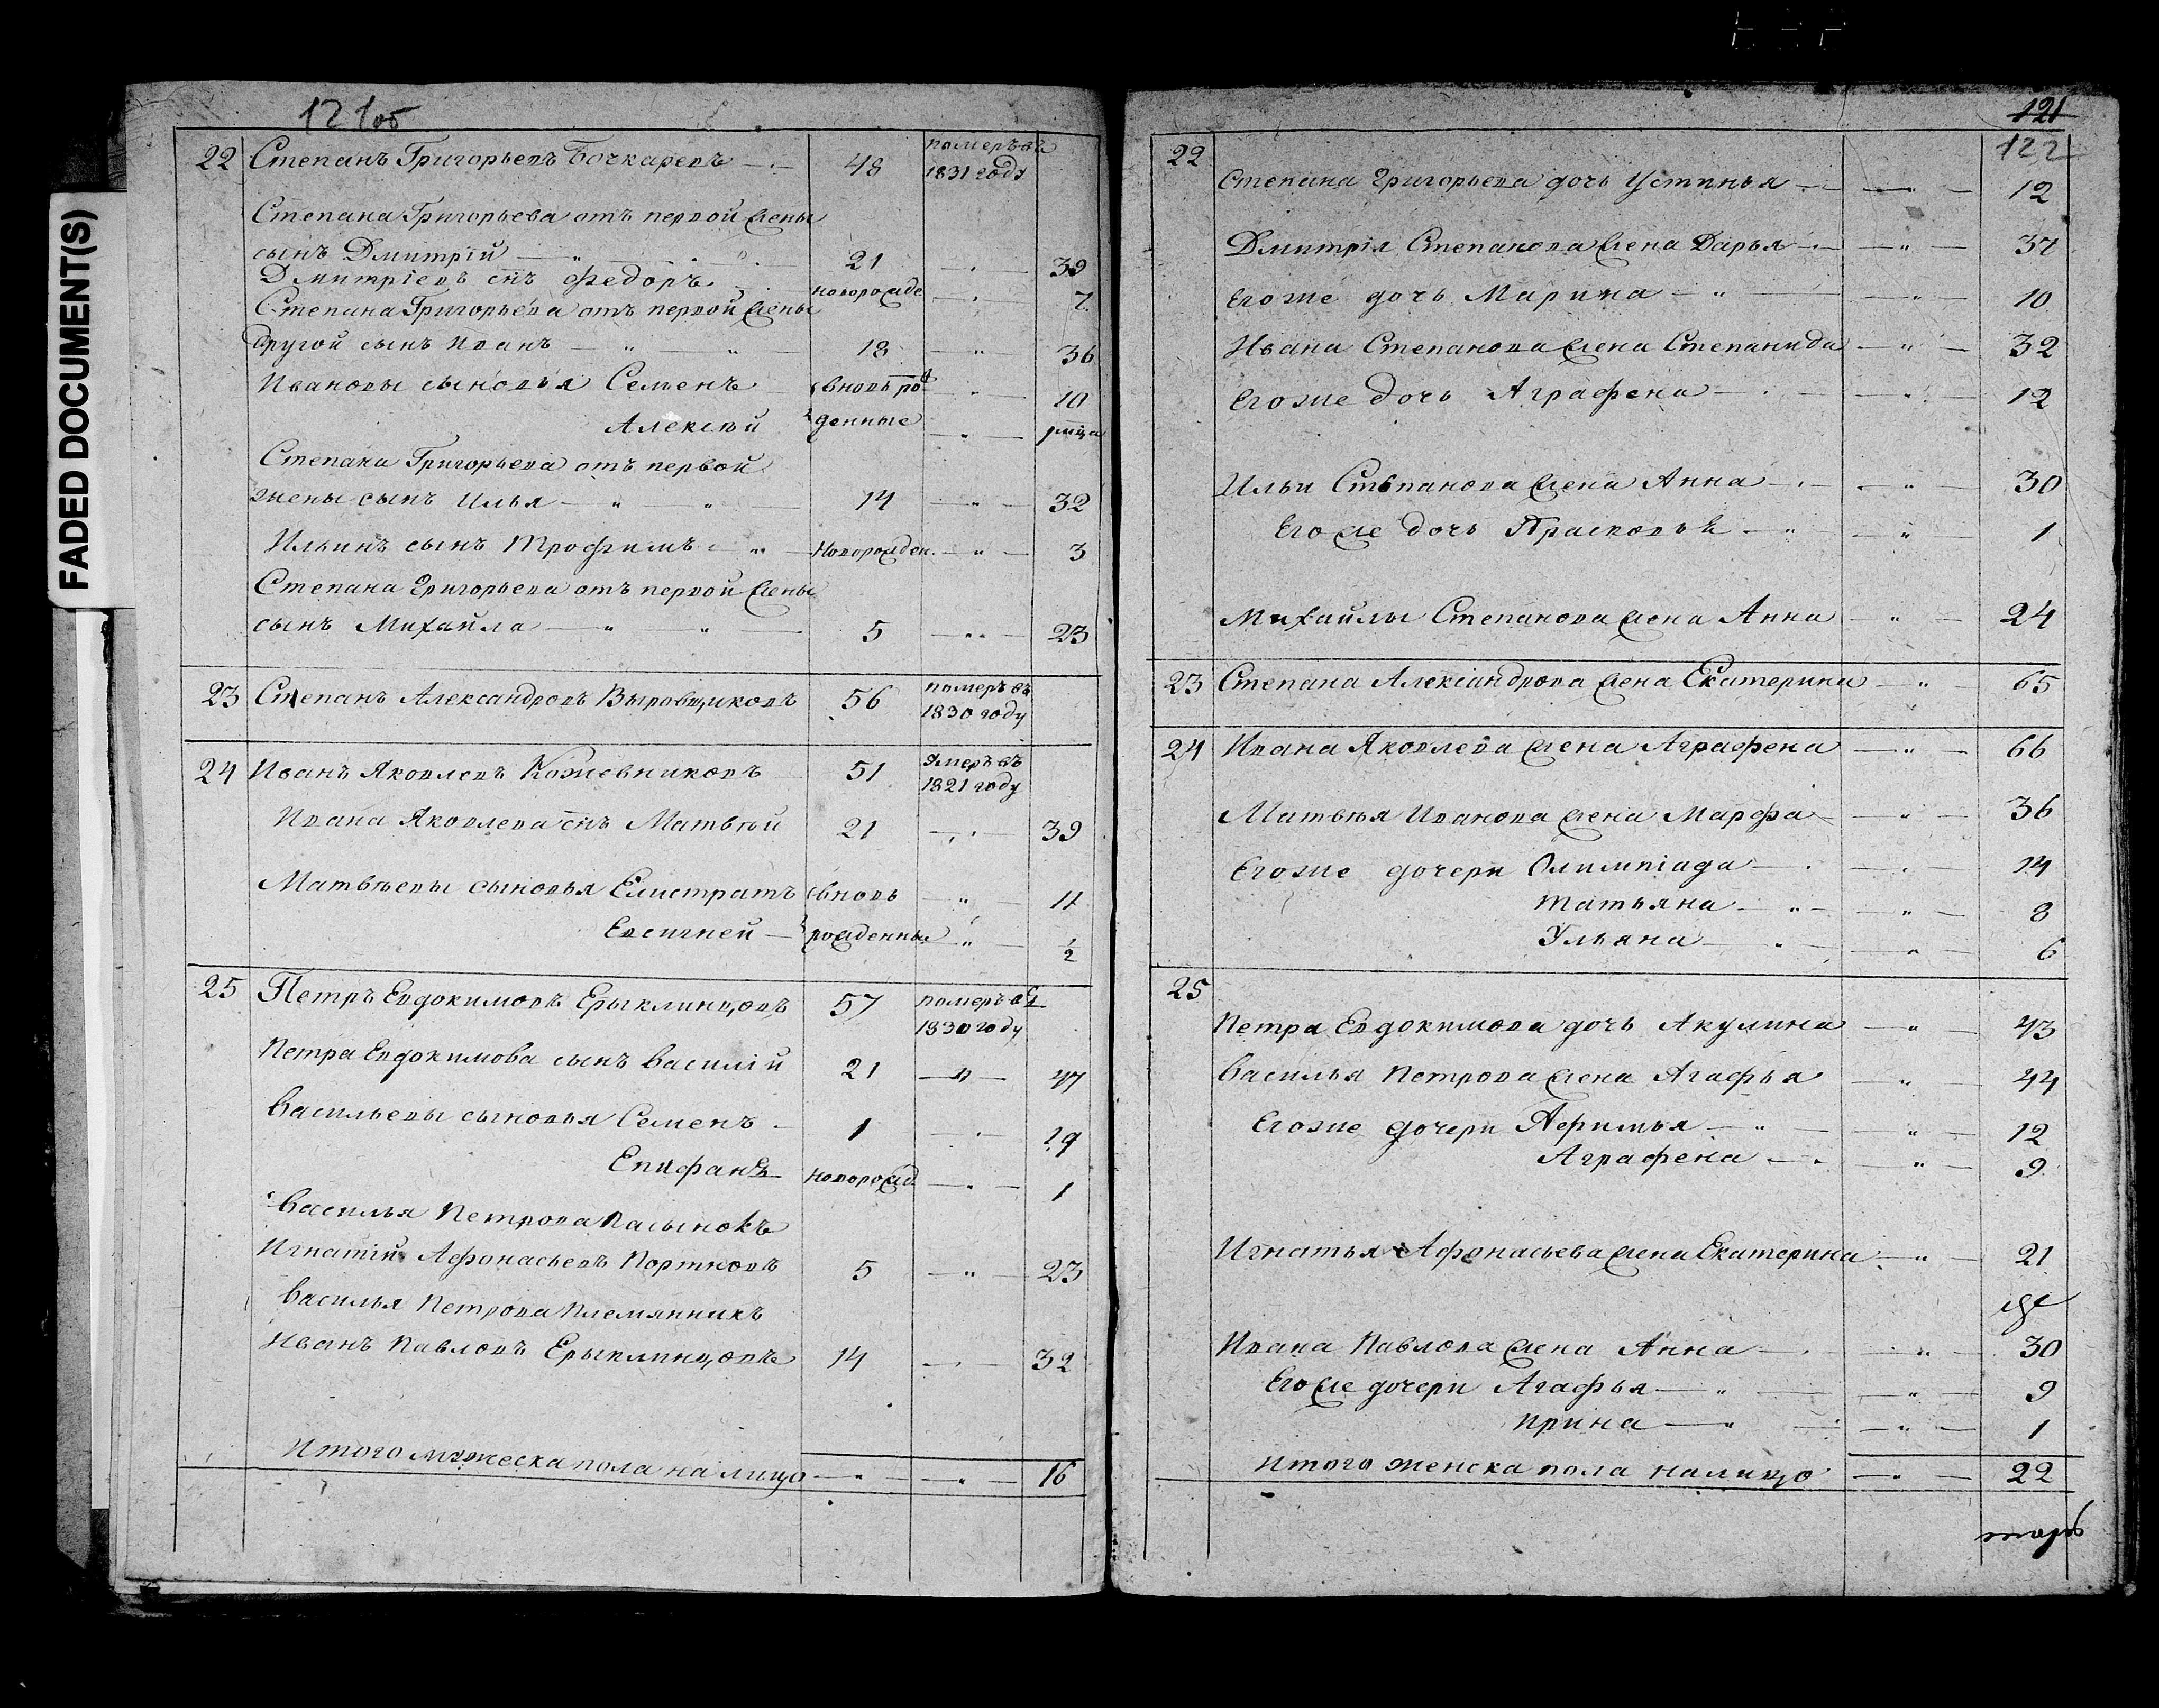 FADED DOCUMENT(S)
121об
22 Степанъ Григорьевъ Бочкаревъ 48 померъ въ
1831 году
Степана Григорьева отъ первой жены
сынъ Дмитрій 21 39
Дмитріевъ снъ Федоръ новорожде 7
Степана Григорьева отъ первой жены
другой сынъ Иванъ 18 36
Ивановы сыновья Семенъ вновь рож 10
Алексѣй денные
Степана Григорьева отъ первой
жены сынъ Илья 14 32
Ильинъ сынъ Трофимъ Новорожден. 3
Степана Григорьева отъ первой жены
сынъ Михайла 5 23
23 Степанъ Александровъ Выровщиковъ 56 померъ въ
1830 году
24 Иванъ Яковлевъ Кожевниковъ 51 Умеръ въ
1821 году
Ивана Яковлева снъ Матвѣй 21 39
Матвѣевы сыновья Елистратъ вновь 11
Евсигней рожденные ½
25 Петръ Евдокимовъ Ерыклинцовъ 57 померъ въ
1830 году
Петра Евдокимова сынъ Василій 21 47
Васильевы сыновья Семенъ 1 19
Епифанъ новорожд 1
Василья Петрова Пасынокъ
Игнатій Афонасьевъ Портновъ 5 23
Василья Петрова Племянникъ
Иванъ Павловъ Ерыклинцовъ 14 32
Итого мужеска пола на лицо 16
121
122
22
Степана Григорьева дочь Устинья 12
Дмитрія Степанова жена Дарья 37
Его же дочь Марина 10
Ивана Степанова жена Степанида 32
Его же дочь Аграфена 12
Ильи Степанова жена Анна 30
Его же дочь Прасковья 1
Михайлы Степанова жена Анна 24
23 Степана Александрова жена Екатерина 65
24 Ивана Яковлева жена Аграфена 66
Матвѣя Иванова жена Марфа 36
Его же дочери Олимпіада 14
Татьяна 8
Ульяна 6
25
Петра Евдокимова дочь Акулина 43
Василья Петрова жена Агафья 44
Его же дочери Афимья 12
Аграфена 9
Игнатья Афонасьева жена Екатерина 21
Ивана Павлова жена Анна 30
Его же дочери Агафья 9
Ирина 1
Итого женска пола налицо 22